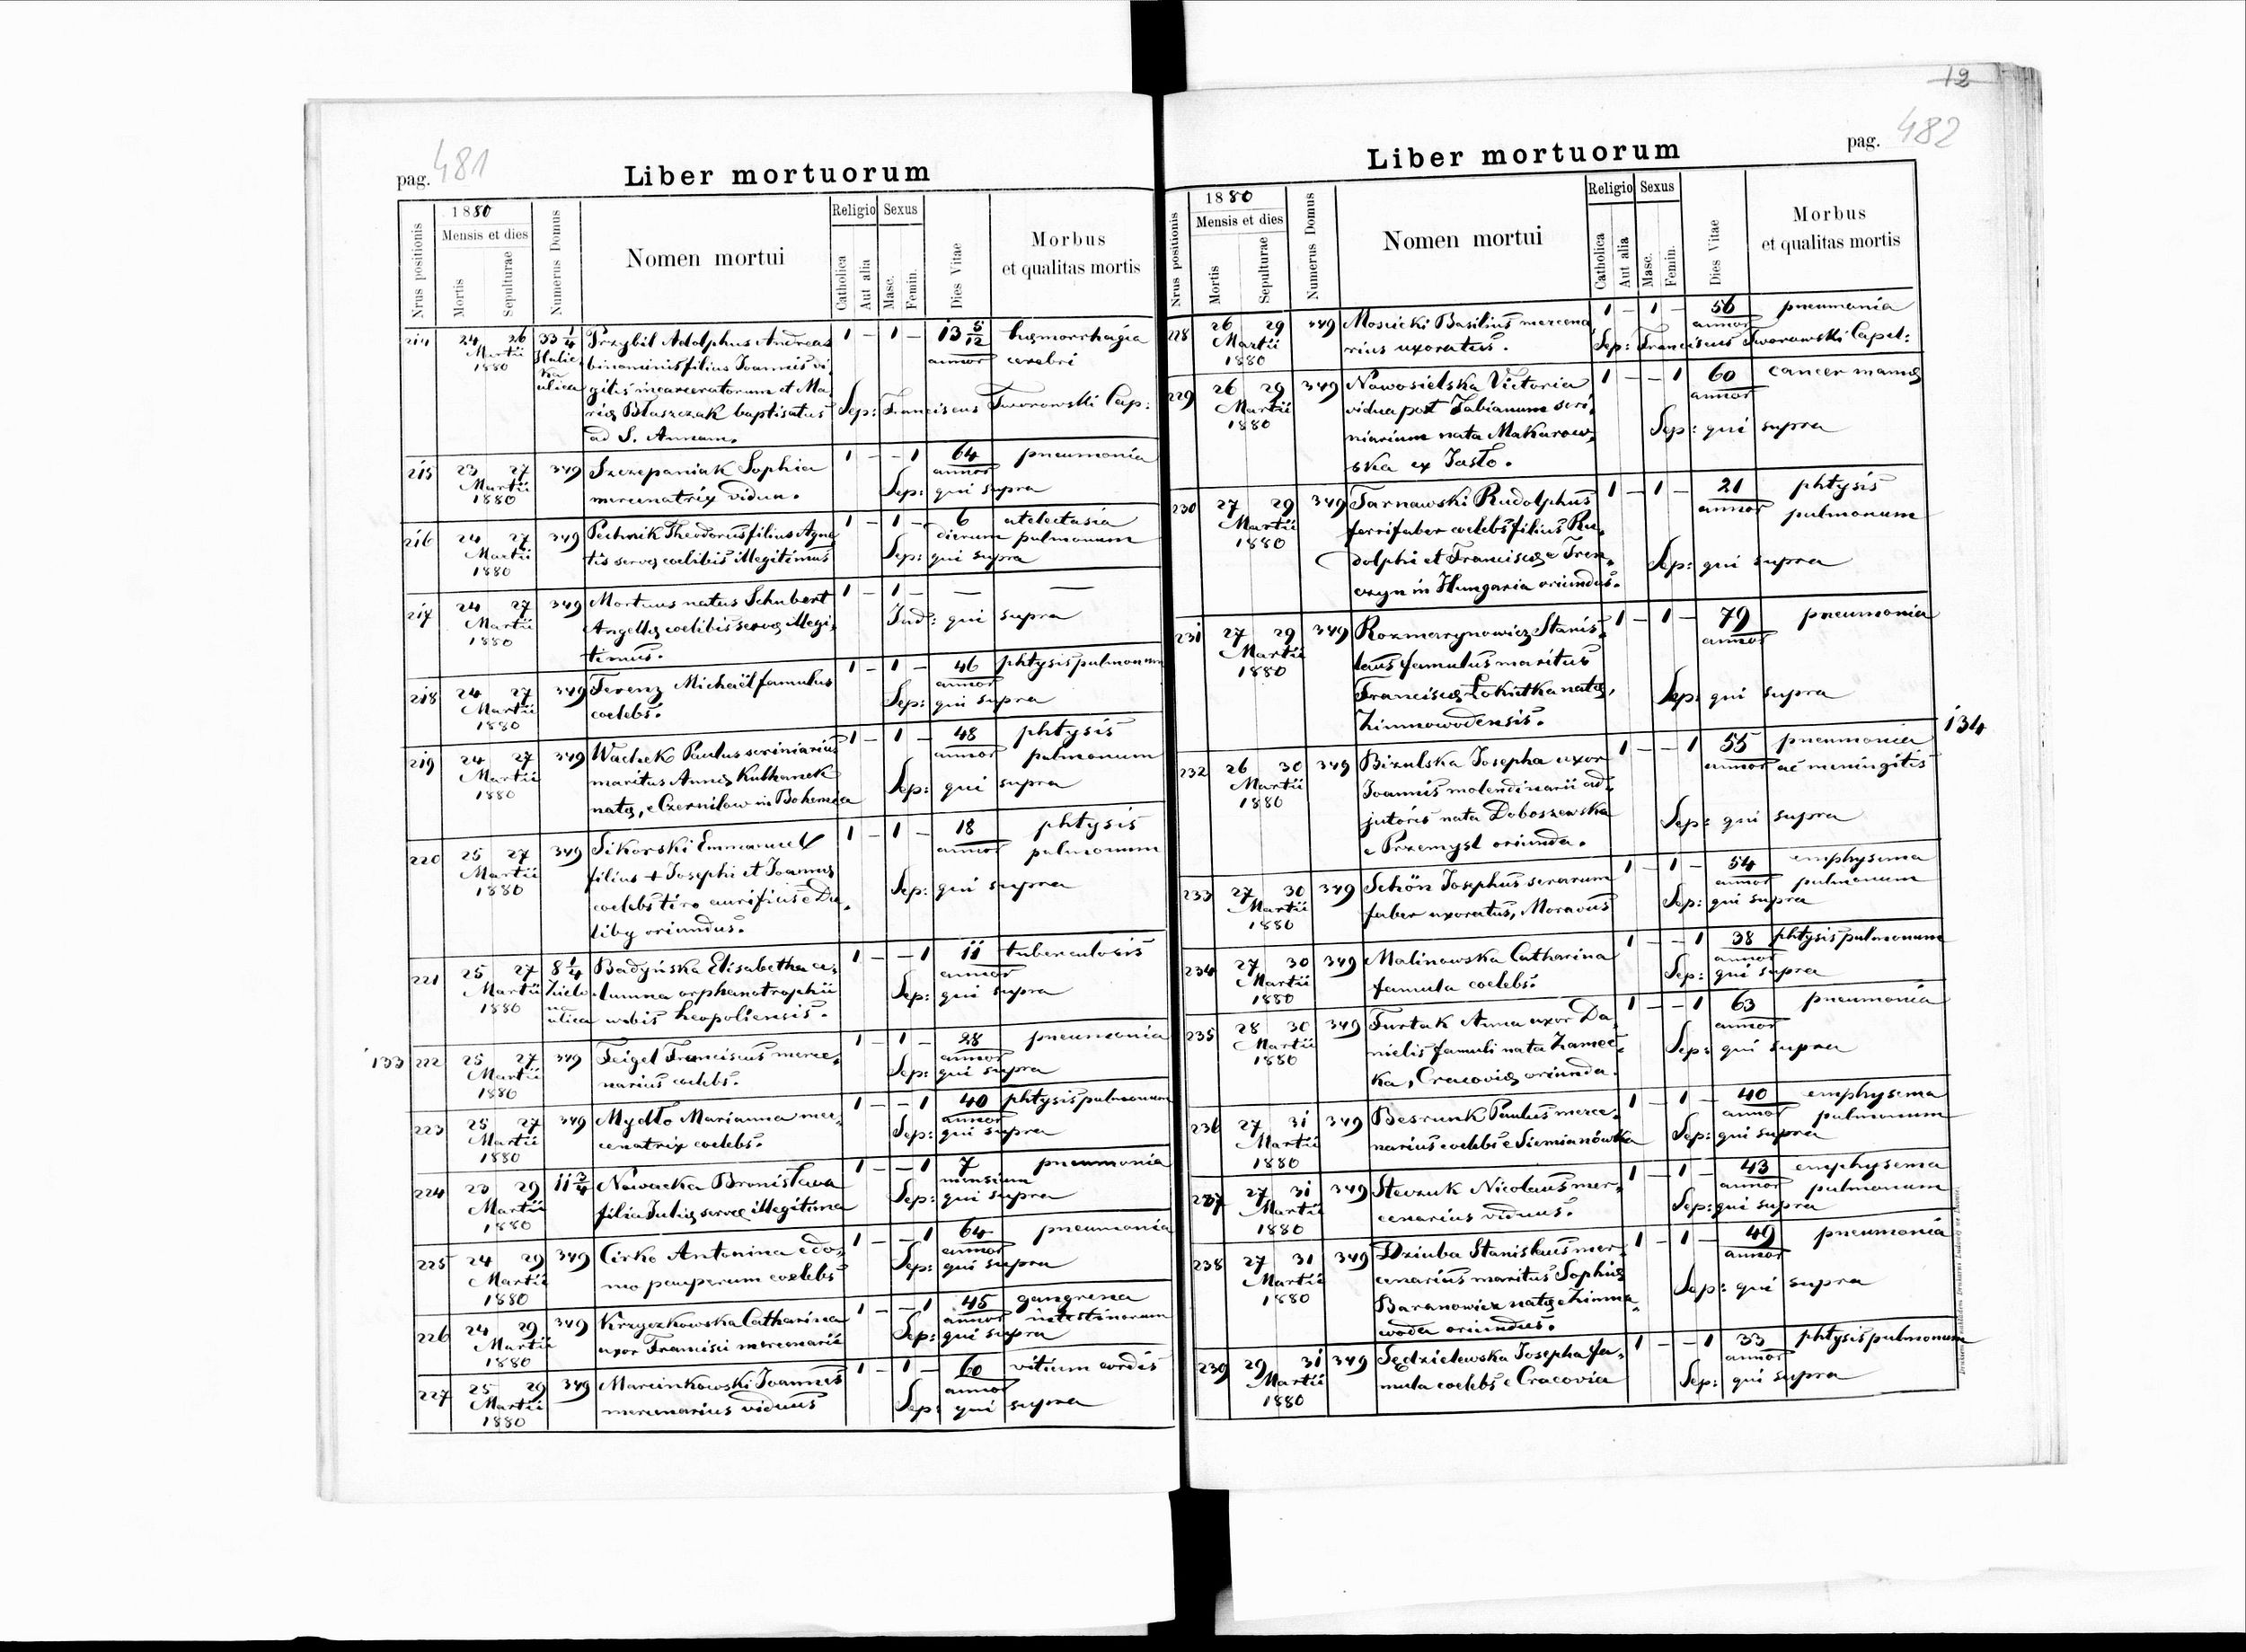 pag. 481
Liber mortuorum
Nrus positionis
1880
Mensis et dies
Mortis
Sepulturae
Numerus Domus
Nomen mortui
Religio
Catholica
Aut alia
Sexus
Masc.
Femin.
Dies Vitae
Morbus
et qualitas mortis
214 24 26 33 1/4 Przybil Adolphus Andreas 1 – 1 – 13 5/12 hęmorrhagia
Martii binominis filius Joannis vi annor cerebri
1880 ulica gilis incarceratorum et Ma
rię Błaszczak baptisatus Sep: Franciscus Tworowski Cap:
ad S. Annam.
215 23 27 349 Szczepaniak Sophia 1 – – 1 64 pneumonia
Martii mercenatrix vidua. annor
1880 Sep: qui supra
216 24 27 349 Pechnik Theodorus filius Agne 1 – 1 – 6 atelectasia
Martii tis servę coelibis illegitimus dierum pulmonum
1880 Sep: qui supra
217 24 27 349 Mortuus natus Schubert 1 – 1 – — —
Martii Angelę coelibis servę illegi Ind: qui supra
1880 timus.
218 24 27 349 Ferenz Michaël famulus 1 – 1 – 46 phtysis pulmonum
Martii coelebs. annor
1880 Sep: qui supra
219 24 27 349 Wachek Paulus scriniarius 1 – 1 – 48 phtysis
Martii maritus Annę Kubhanek annor pulmonum
1880 natę, e Czernilow in Bohemia Sep: qui supra
220 25 27 349 Sikorski Emmanuel 1 – 1 – 18 phtysis
Martii filius + Josephi et Joannę annor pulmonum
1880 coelebs tiro aurificis e Du Sep: qui supra
liby oriundus.
221 25 27 8 1/4 Badyńska Elisabetha a 1 – – 1 11 tuberculosis
Martii Zielo lumna orphanotrophii annor
1880 na urbis Leopoliensis. Sep: qui supra
ulica
133 222 25 27 349 Feigel Franciscus merce 1 – 1 – 28 pneumonia
Martii narius coelebs. annor
1880 Sep: qui supra
223 25 27 349 Mydło Marianna mer 1 – – 1 40 phtysis pulmonum
Martii cenatrix coelebs. annor
1880 Sep: qui supra
224 23 29 11 3/4 Nawacka Bronisława 1 – – 1 7 pneumonia
Martii filia Julię servę illegitima mensium
1880 Sep: qui supra
225 24 29 349 Cirko Antonina e do 1 – – 1 64 pneumonia
Martii mo pauperum coelebs annor
1880 Sep: qui supra
226 24 29 349 Krzyczkowska Catharina 1 – – 1 45 gangrena
Martii uxor Francisci mercenarii annor intestinorum
1880 Sep: qui supra
227 25 29 349 Marcinkowski Joannes 1 – 1 – 60 vitium cordis
Martii mercenarius viduus annor
1880 Sep: qui supra
12
pag. 482
Liber mortuorum
Nrus positionis
1880
Mensis et dies
Mortis
Sepulturae
Numerus Domus
Nomen mortui
Religio
Catholica
Aut alia
Sexus
Masc.
Femin.
Dies Vitae
Morbus
et qualitas mortis
228 26 29 349 Mosicki Basilius mercena 1 – 1 – 56 pneumonia
Martii rius uxoratus. annor
1880 Sep: Franciscus Tworowski Capel:
229 26 29 349 Nawosielska Victoria 1 – – 1 60 cancer mamę
Martii vidua post Fabianum scri annor
1880 niarium nata Makarow Sep: qui supra
ska ex Jasło.
230 27 29 349 Tarnawski Rudolphus 1 – 1 – 21 phtysis
Martii ferrifaber coelebs filius Ru annor pulmonum
1880 dolphi et Franciscę e Tren Sep: qui supra
czyn in Hungaria oriundus.
231 27 29 349 Rozmarynowicz Stanis 1 – 1 – 79 pneumonia
Martii laus famulus maritus annor
1880 Franciscę Łokietka natę, Sep: qui supra
Zimnowodensis.
134
232 26 30 349 Bizulska Josepha uxor 1 – – 1 55 pneumonia
Martii Joannis molendinarii ad annor ac meningitis
1880 jutoris nata Doboszewska Sep: qui supra
e Przemysl oriunda.
233 27 30 349 Schön Josephus serarum 1 – 1 – 54 emphysema
Martii faber uxoratus, Moravus annor pulmonum
1880 Sep: qui supra
234 27 30 349 Malinowska Catharina 1 – – 1 38 phtysis pulmonum
Martii famula coelebs. annor
1880 Sep: qui supra
235 28 30 349 Furtak Anna uxor Da 1 – – 1 63 pneumonia
Martii nielis famuli nata Zamec annor
1880 ka, Cracovię oriunda. Sep: qui supra
236 27 31 349 Besrunk Paulus merce 1 – 1 – 40 emphysema
Martii narius coelebs e Siemianówka annor pulmonum
1880 Sep: qui supra
237 27 31 349 Stevzuk Nicolaus mer 1 – 1 – 43 emphysema
Martii cenarius viduus. annor pulmonum
1880 Sep: qui supra
238 27 31 349 Dziuba Stanislaus mer 1 – 1 – 49 pneumonia
Martii cenarius maritus Sophię annor
1880 Baranowicz natę e Zimna Sep: qui supra
woda oriundus.
239 29 31 349 Sędzielewska Josepha fa 1 – – 1 33 phtysis pulmonum
Martii mula coelebs e Cracovia annor
1880 Sep: qui supra